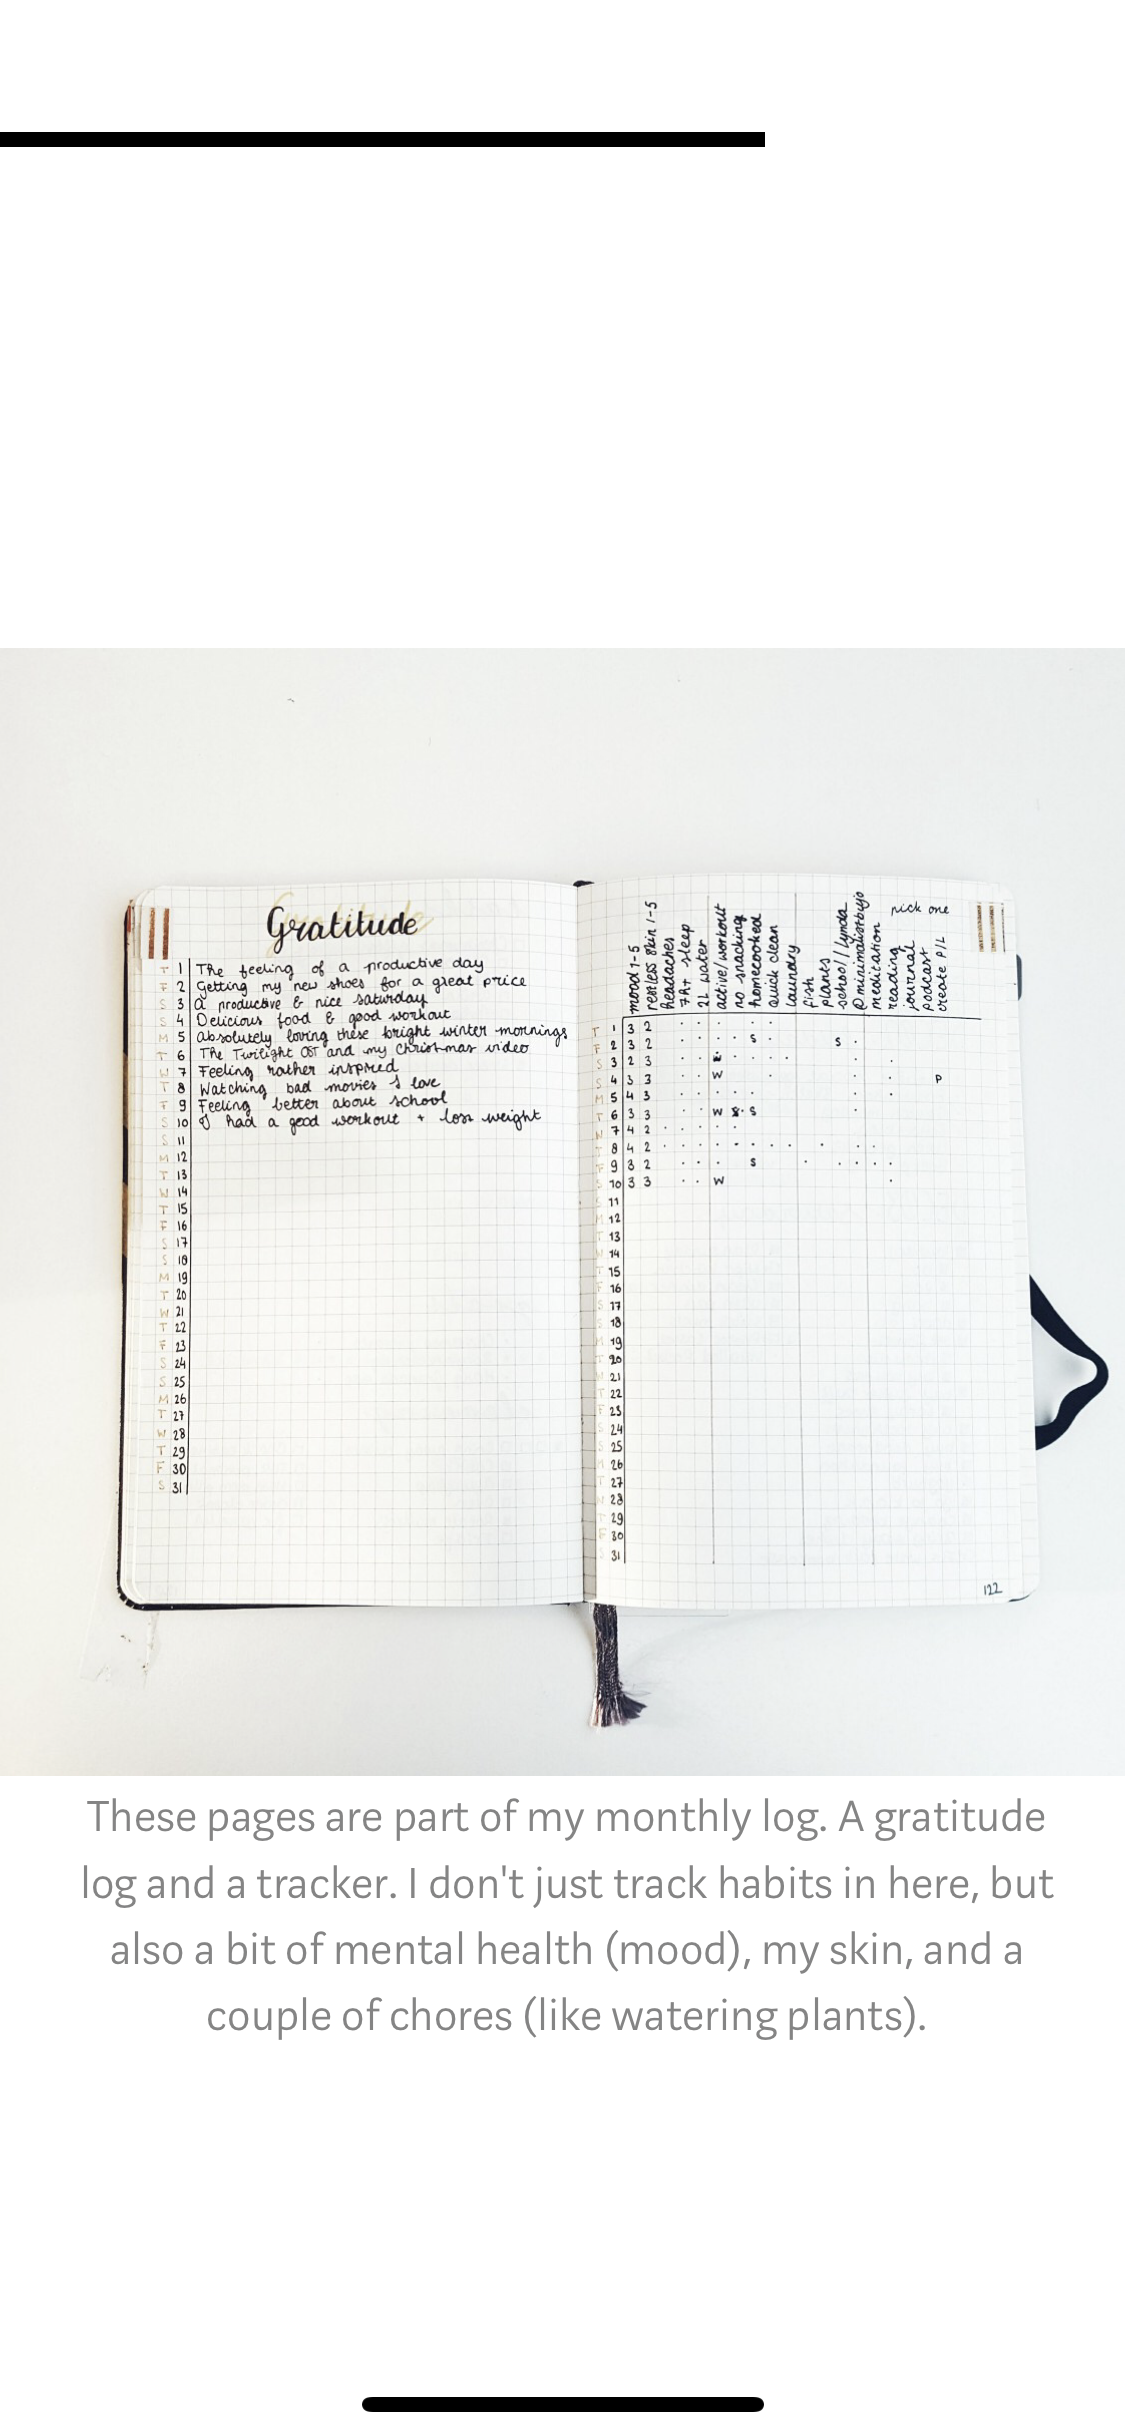 Gratitude
T 1 The feeling of a productive day
F 2 Getting my new shoes for a great price
S 3 A productive & nice saturday
S 4 Delicious food & good workout
M 5 absolutely loving these bright winter mornings
T 6 The Twilight OST and my Christmas video
W 7 Feeling rather inspired
T 8 Watching bad movies I love
F 9 Feeling better about school
S 10 I had a good workout + loss weight
S 11
M 12
T 13
W 14
T 15
F 16
S 17
S 18
M 19
T 20
W 21
T 22
F 23
S 24
S 25
M 26
T 27
W 28
T 29
F 30
S 31
pick one
mood 1-5
restless skin 1-5
headaches
7h+ sleep
2L water
active/workout
no snacking
homecooked
quick clean
laundry
fish
plants
school//lynda
@minimalistbujo
medication
reading
journal
podcast
create P/L
T 1 3 2
F 2 3 2 S S
S 3 2 3
S 4 3 3 W P
M 5 4 3
T 6 3 3 W S
W 7 4 2
T 8 4 2
F 9 3 2 S
S 10 3 3 W
11
M 12
T 13
W 14
T 15
F 16
S 17
S 18
M 19
T 20
W 21
T 22
F 23
S 24
S 25
M 26
T 27
W 28
T 29
F 30
S 31
122
These pages are part of my monthly log. A gratitude
log and a tracker. I don't just track habits in here, but
also a bit of mental health (mood), my skin, and a
couple of chores (like watering plants).